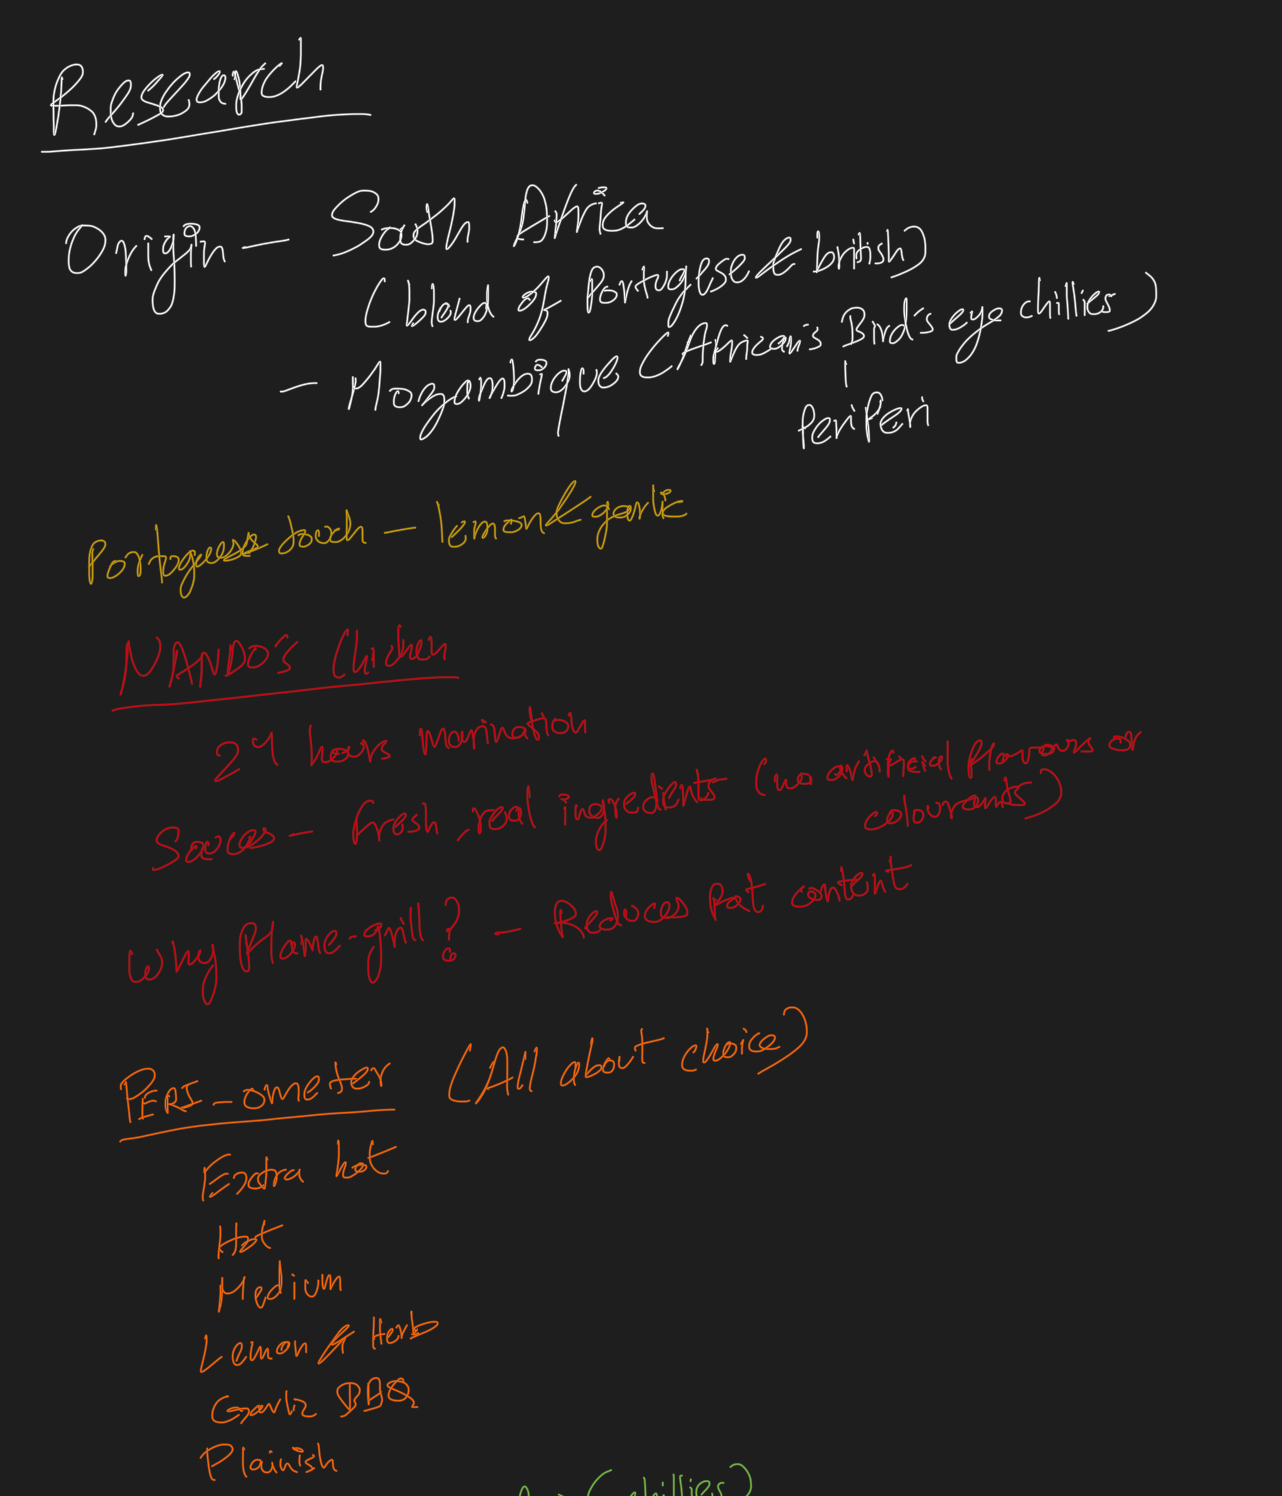 Research
Origin — South Africa
(blend of Portugese & british)
— Mozambique (African's Bird's eye chillies)
PeriPeri
Portoguese touch — lemon & garlic
NANDO'S Chicken
24 hours marination
Sauces — fresh, real ingredients (no artificial flavours or
colourants)
Why flame-grill? — Reduces fat content
PERI-ometer (All about choice)
Extra hot
Hot
Medium
Lemon & Herb
Garlic BBQ
Plainish
(chillies)